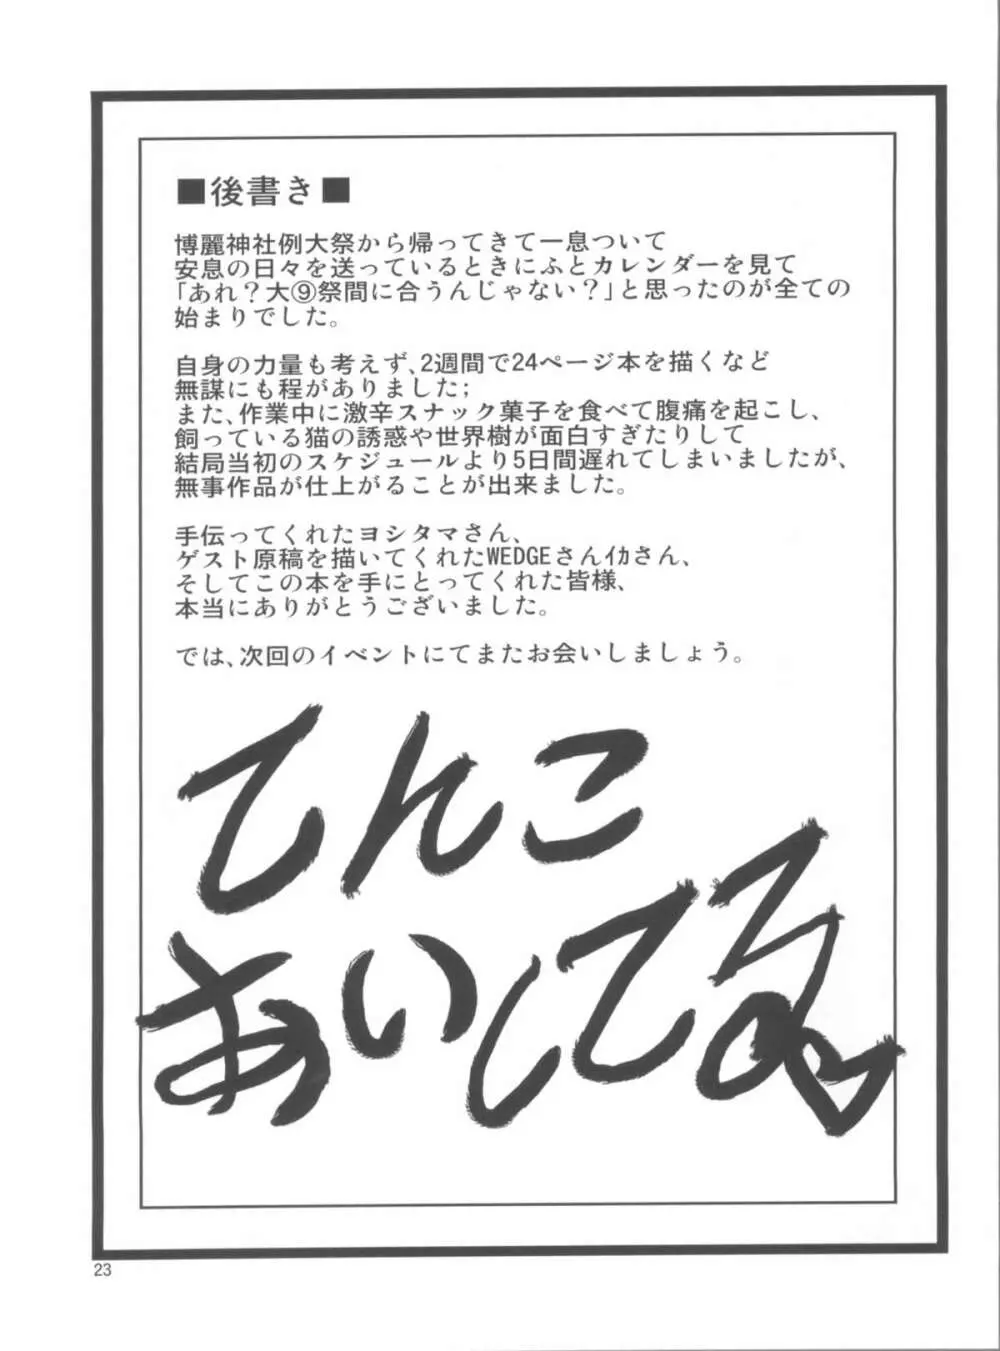 ■後書き■
博麗神社例大祭から帰ってきて一息ついて
安息の日々を送っているときにふとカレンダーを見て
「あれ?大⑨祭間に合うんじゃない?」と思ったのが全ての
始まりでした。
自身の力量も考えず、2週間で24ページ本を描くなど
無謀にも程がありました;
また、作業中に激辛スナック菓子を食べて腹痛を起こし、
飼っている猫の誘惑や世界樹が面白すぎたりして
結局当初のスケジュールより5日間遅れてしまいましたが、
無事作品が仕上がることが出来ました。
手伝ってくれたヨシタマさん、
ゲスト原稿を描いてくれたWEDGEさんイカさん、
そしてこの本を手にとってくれた皆様、
本当にありがとうございました。
では、次回のイベントにてまたお会いしましょう。
てんこ
あいしてる
23